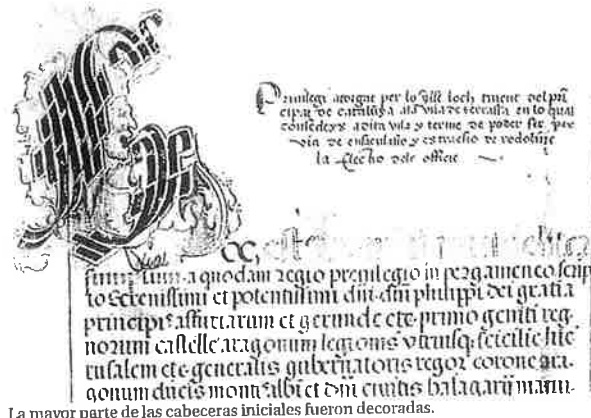 Privilegi atorgat per lo yll͞e loch tinent del prī
cipat de cataluȳa ala vila de terrassa en lo qual
consedexx adita vila y terme de poder fer per
via de ensiculatio y extractio de rodolins
la electio dels officis
Hoc
simptum a quodam regio previlegio in pergameneo scrip
to Serenissimi et potentissimi dn̄i dn̄i philippi dei gratia
principis asturiarum et gerunde etc primo geniti reg
norum castelle aragonum legionis utriusq sicilie hie
rusalem etc generalis gubernatoris regoꝝ corone ara
gonum ducis montis albi et dn̄i civitis balagarij manu
La mayor parte de las cabeceras iniciales fueron decoradas.